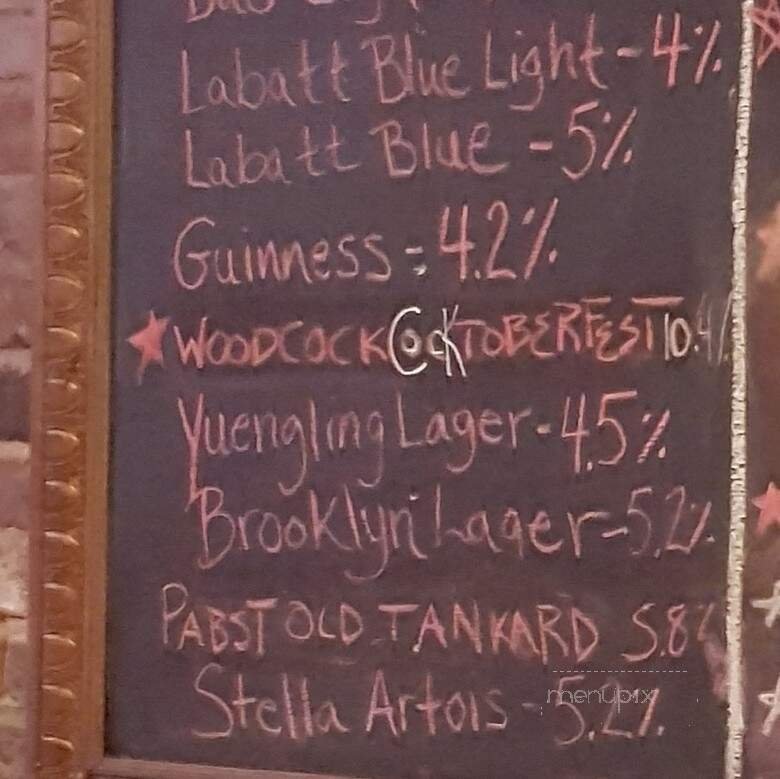 Bud Light
Labatt Blue Light - 4%
Labatt Blue - 5%
Guinness - 4.2%
WOODCOCK COCKTOBERFEST 10.4%
Yuengling Lager - 4.5%
Brooklyn Lager - 5.2%
PABST OLD TANKARD 5.8%
Stella Artois - 5.2%
menupix